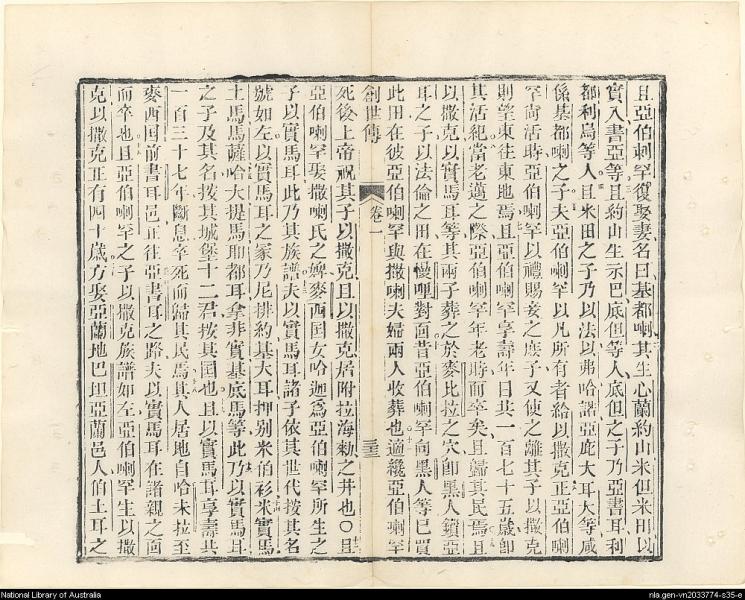 且亞伯喇罕復娶妻名曰基都喇其生心蘭約山米但米田以
實入書亞等且約山生示巴底但等人底但之子乃亞書耳利
都利烏等人且米田之子乃以法以弗哈諾亞庇大耳大等咸
係基都喇之子夫亞伯喇罕以凡所有者給以撒克正亞伯喇
罕尚活時亞伯喇罕以禮賜妾之庶子又使之離其子以撒克
則望東往東地焉且亞伯喇罕享壽年日共一百七十五歲卽
其活紀當老邁之際亞伯喇罕年老時而卒矣且歸其民焉且
以撒克以實馬耳等其兩子葬之於麥比拉之穴卽黑人鎖亞
耳之子以法倫之田在慢哩對面昔亞伯喇罕向黑人等已買
此田在彼亞伯喇罕與撒喇夫婦兩人收葬也適纔亞伯喇罕
創世傳 卷一 三三
死後上帝祝其子以撒克且以撒克居附拉海勑之井也〇且
亞伯喇罕娶撒喇氏之婢麥西国女哈迦爲亞伯喇罕所生之
子以實馬耳此乃其族譜夫以實馬耳諸子依其世代按其名
號如左以實馬耳之冢乃尼排約基大耳押别米伯衫米實馬
土馬馬薩哈大提馬耶都耳拿非實基底馬等此乃以實馬耳
之子及其名按其城堡十二君按其国也且以實馬耳享壽共
一百三十七年斷息卒死而歸其民焉其人居地自哈未拉至
麥西国前書耳邑正往亞書耳之路夫以實馬耳在諸親之面
而卒也且亞伯喇罕之子以撒克族譜如左亞伯喇罕生以撒
克以撒克正有四十歲方娶亞蘭地巴坦亞蘭邑人伯土耳之
National Library of Australia
nla.gen-vn2033774-s35-e